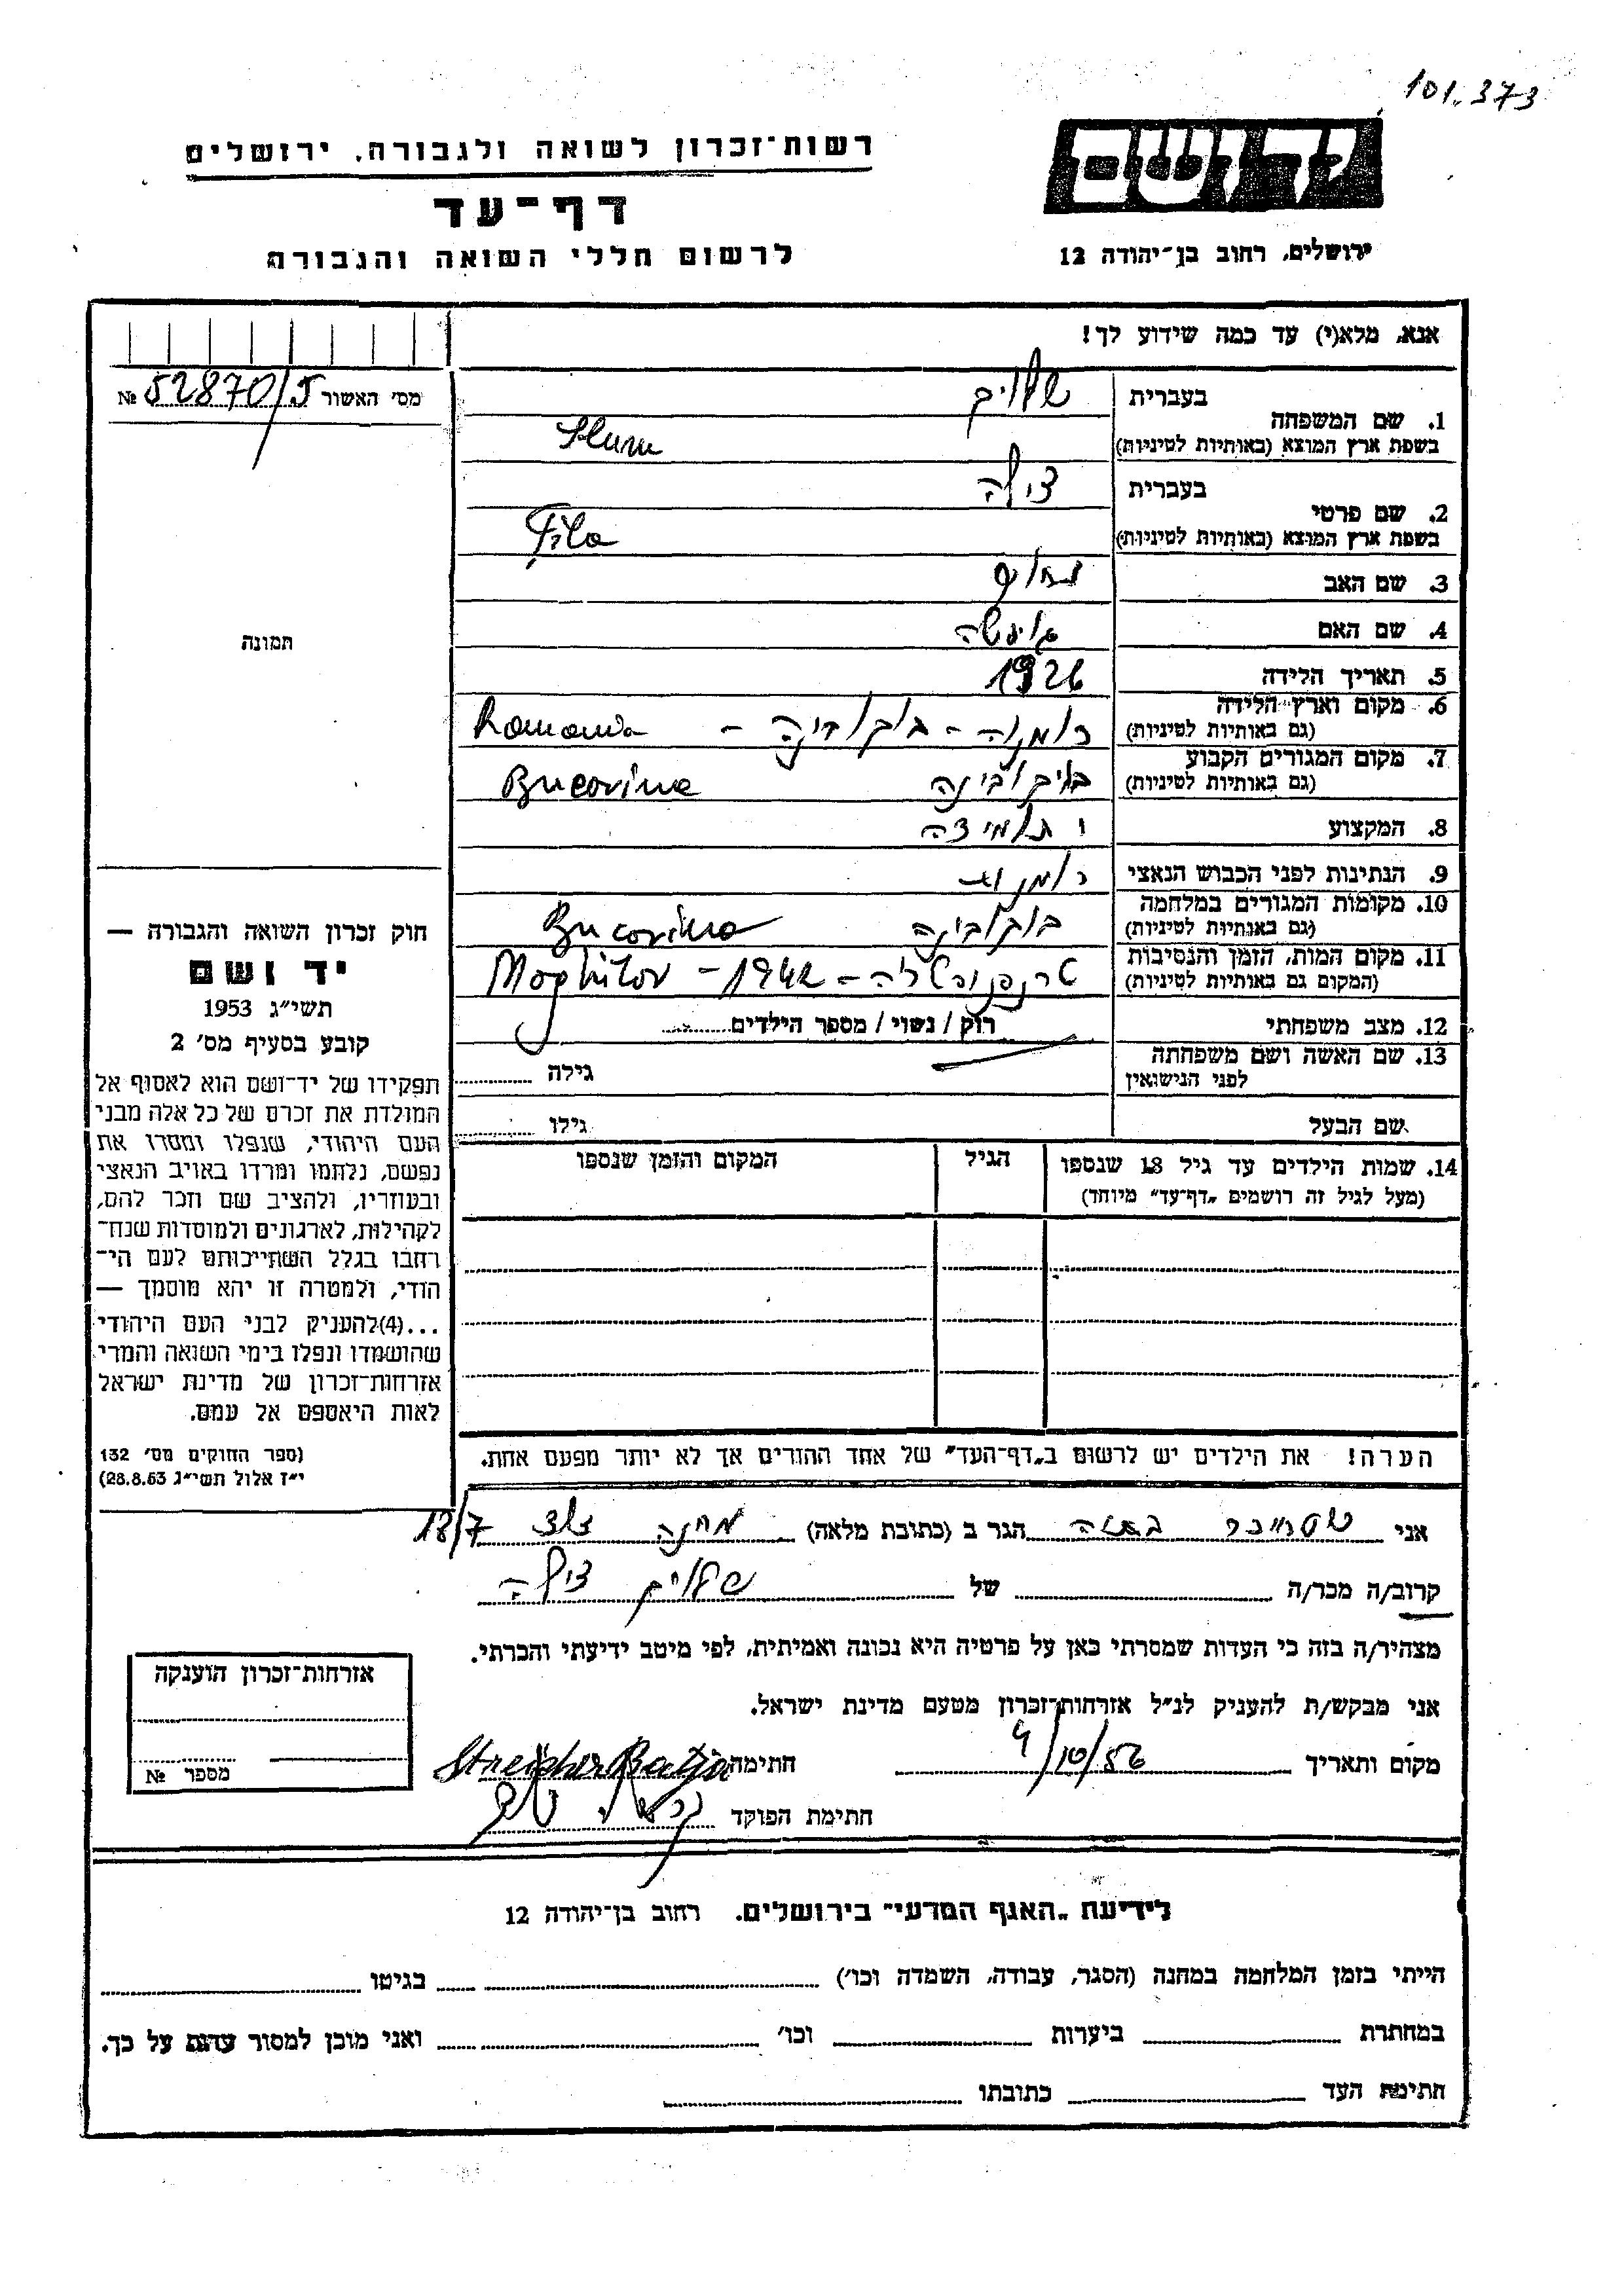 101.373
יד ושם
ירושלים, רחוב בן־יהודה 12
רשות־זכרון לשואה ולגבורה, ירושלים
דף־עד
לרשום חללי השואה והגבורה
אנא, מלא(י) עד כמה שידוע לך!
מס' האשור № 52870/5
1. שם המשפחה
בעברית
בשפת ארץ המוצא (באותיות לטיניות)
2. שם פרטי
בעברית צילה
בשפת ארץ המוצא (באותיות לטיניות)
3. שם האב
4. שם האם
5. תאריך הלידה 1926
6. מקום וארץ הלידה
(גם באותיות לטיניות)
רומניה - בוקובינה - Romania
7. מקום המגורים הקבוע
(גם באותיות לטיניות)
בוקובינה Bucovina
8. המקצוע תלמידה
9. הנתינות לפני הכבוש הנאצי רומנית
10. מקומות המגורים במלחמה
(גם באותיות לטיניות)
בוקובינה Bucovina
11. מקום המות, הזמן והנסיבות
(המקום גם באותיות לטיניות)
טרנסניסטריה - 1942 - Moghilov
12. מצב משפחתי רווק / נשוי / מספר הילדים
13. שם האשה ושם משפחתה
לפני הנישואין
גילה
שם הבעל
גילו
14. שמות הילדים עד גיל 18 שנספו
(מעל לגיל זה רושמים „דף־עד" מיוחד)
הגיל
המקום והזמן שנספו
תמונה
חוק זכרון השואה והגבורה —
יד ושם
תשי"ג 1953
קובע בסעיף מס' 2
תפקידו של יד־ושם הוא לאסוף אל
המולדת את זכרם של כל אלה מבני
העם היהודי, שנפלו ומסרו את
נפשם, נלחמו ומרדו באויב הנאצי
ובעוזריו, ולהציב שם וזכר להם,
לקהילות, לארגונים ולמוסדות שנח־
רבו בגלל השתייכותם לעם הי־
הודי, ולמטרה זו יהא מוסמך —
...(4)להעניק לבני העם היהודי
שהושמדו ונפלו בימי השואה והמרי
אזרחות־זכרון של מדינת ישראל
לאות היאספם אל עמם.
(ספר החוקים מס' 132
י"ז אלול תשי"ג 28.8.53)
הערה! את הילדים יש לרשום ב„דף־העד" של אחד ההורים אך לא יותר מפעם אחת.
אני שטרייכר בתיה הגר ב (כתובת מלאה) מחנה 18/7
קרוב/ה מכר/ה של צילה
מצהיר/ה בזה כי העדות שמסרתי כאן על פרטיה היא נכונה ואמיתית, לפי מיטב ידיעתי והכרתי.
אני מבקש/ת להעניק לנ"ל אזרחות־זכרון מטעם מדינת ישראל.
מקום ותאריך 9/10/56 חתימה Streicher Batja
חתימת הפוקד
אזרחות־זכרון הוענקה
מספר №
לידיעת „האגף המדעי" בירושלים, רחוב בן־יהודה 12
הייתי בזמן המלחמה במחנה (הסגר, עבודה, השמדה וכו') בגיטו
במחתרת ביערות וכו' ואני מוכן למסור עדות על כך.
חתימת העד כתובתו